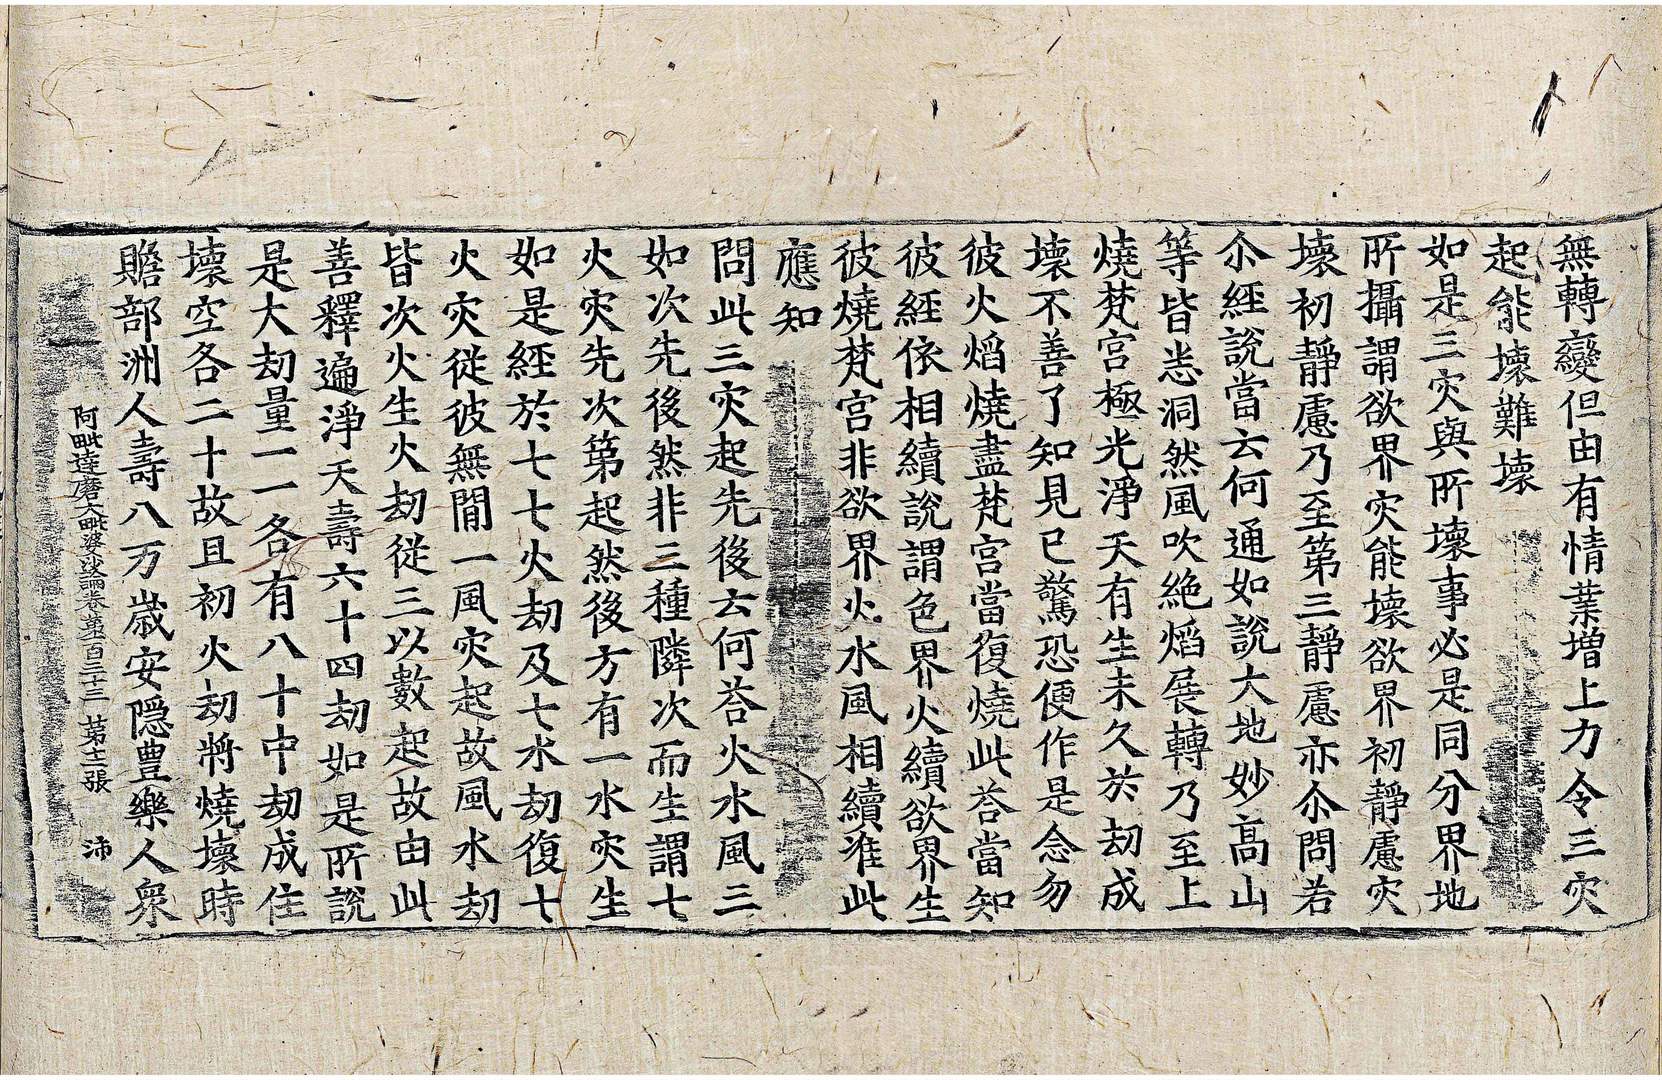 無轉變但由有情業増上力令三灾
起能壞難壞
如是三灾與所壞事必是同分界地
所攝謂欲界灾能壞欲界初靜慮灾
壞初靜慮乃至第三靜慮亦尒問若
尒經說當云何通如說大地妙高山
等皆悉洞然風吹絶焰展轉乃至上
燒梵宫極光淨天有生未久於劫成
壞不善了知見已驚恐便作是念勿
彼火焰燒盡梵宫當復燒此荅當知
彼經依相續說謂色界火續欲界生
彼燒梵宫非欲界火水風相續准此
應知
問此三灾起先後云何荅火水風三
如次先後然非三種隣次而生謂七
火灾先次第起然後方有一水灾生
如是經於七七火劫及七水劫復七
火灾從彼無閒一風灾起故風水劫
皆次火生火劫從三以數起故由此
善釋遍淨天壽六十四劫如是所說
是大劫量一一各有八十中劫成住
壞空各二十故且初火劫將燒壞時
贍部洲人壽八万歲安隱豊樂人衆
阿毗達磨大毗婆沙論卷第一百三十三 第十二張 沛